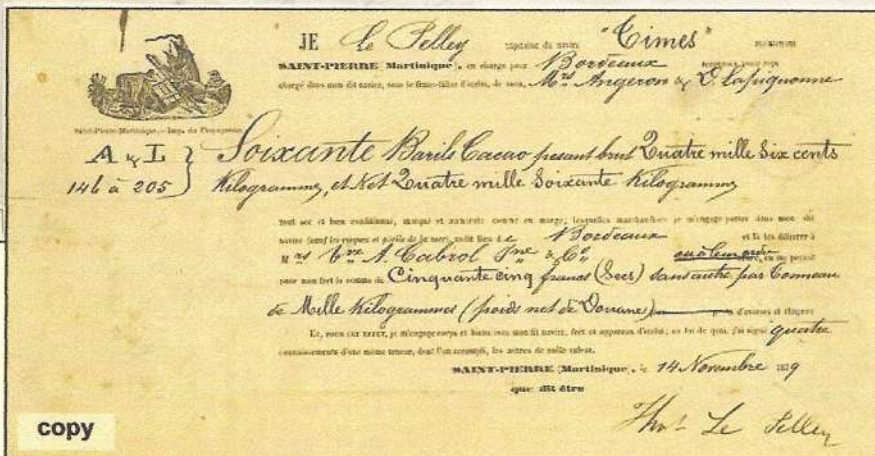 JE Le Pelley capitaine du navire "Times" maintenant
SAINT-PIERRE Martinique), en charge pour Bordeaux reconnais avoir reçu
chargé dans mon dit navire, sous le franc-tillac d'icelui, de vous, Mrs Angeron & D. Lapiquonne
Saint-Pierre-Martinique. — Imp. du Propagateur
A & L } Soixante Barils Cacao pesant brut Quatre mille Six cents
146 à 205 Kilogrammes, et Net Quatre mille Soixante Kilogrammes
tout sec et bien conditionné, marqué et numéroté comme en marge; lesquelles marchandises je m'engage porter dans mon dit
navire (sauf les risques et périls de la mer), audit lieu de Bordeaux et là les délivrer à
Mrs Vve A. Cabrol Jne & Cie ou à leur ordre, en me payant
pour mon fret la somme de Cinquante cinq francs (Secs) sans autre par Tonneau
de Mille Kilogrammes (poids net de Douane) d'avaries et
Et, pour cet tenir, je m'engage corps et biens avec mon dit navire, fret et apparaux d'icelui; en foi de quoi, j'ai signé quatre
connaissements d'une même teneur, dont l'un accompli, les autres de nulle valeur.
SAINT-PIERRE (Martinique), le 14 Novembre 1879
que dit être
Thos Le Pelley
copy